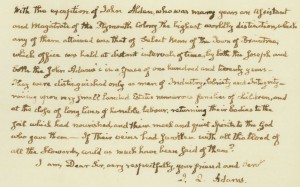 With the exception of John Alden, who was many years an Assistant
and Magistrate of the Plymouth Colony the highest worldly distinction which
any of them attained was that of Select Man of the Town of Braintree,
which office was held at distant intervals of time, by both the Joseph and
both the John Adams's in a space of one hundred and twenty years.
They were distinguished only as men of Industry, Sobriety and Integrity
upon very small landed Estates numerous families of children, and
at the close of long lives of humble labour, returning their bodies to the
soil which had nourished them and their meek and quiet spirits to the God
who gave them. If their veins had flowed with all the blood of
all the Howards could as much have been said of them?
I am, Dear Sir, very respectfully, your friend and
J. Q. Adams.